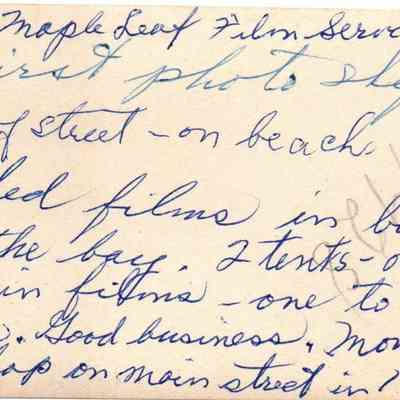 Maple Leaf Film Servic
irst photo sho
of street - on beach.
led films in b
the bay. 2 tents - o
in films - one to
. Good business. Mo
op on main street in